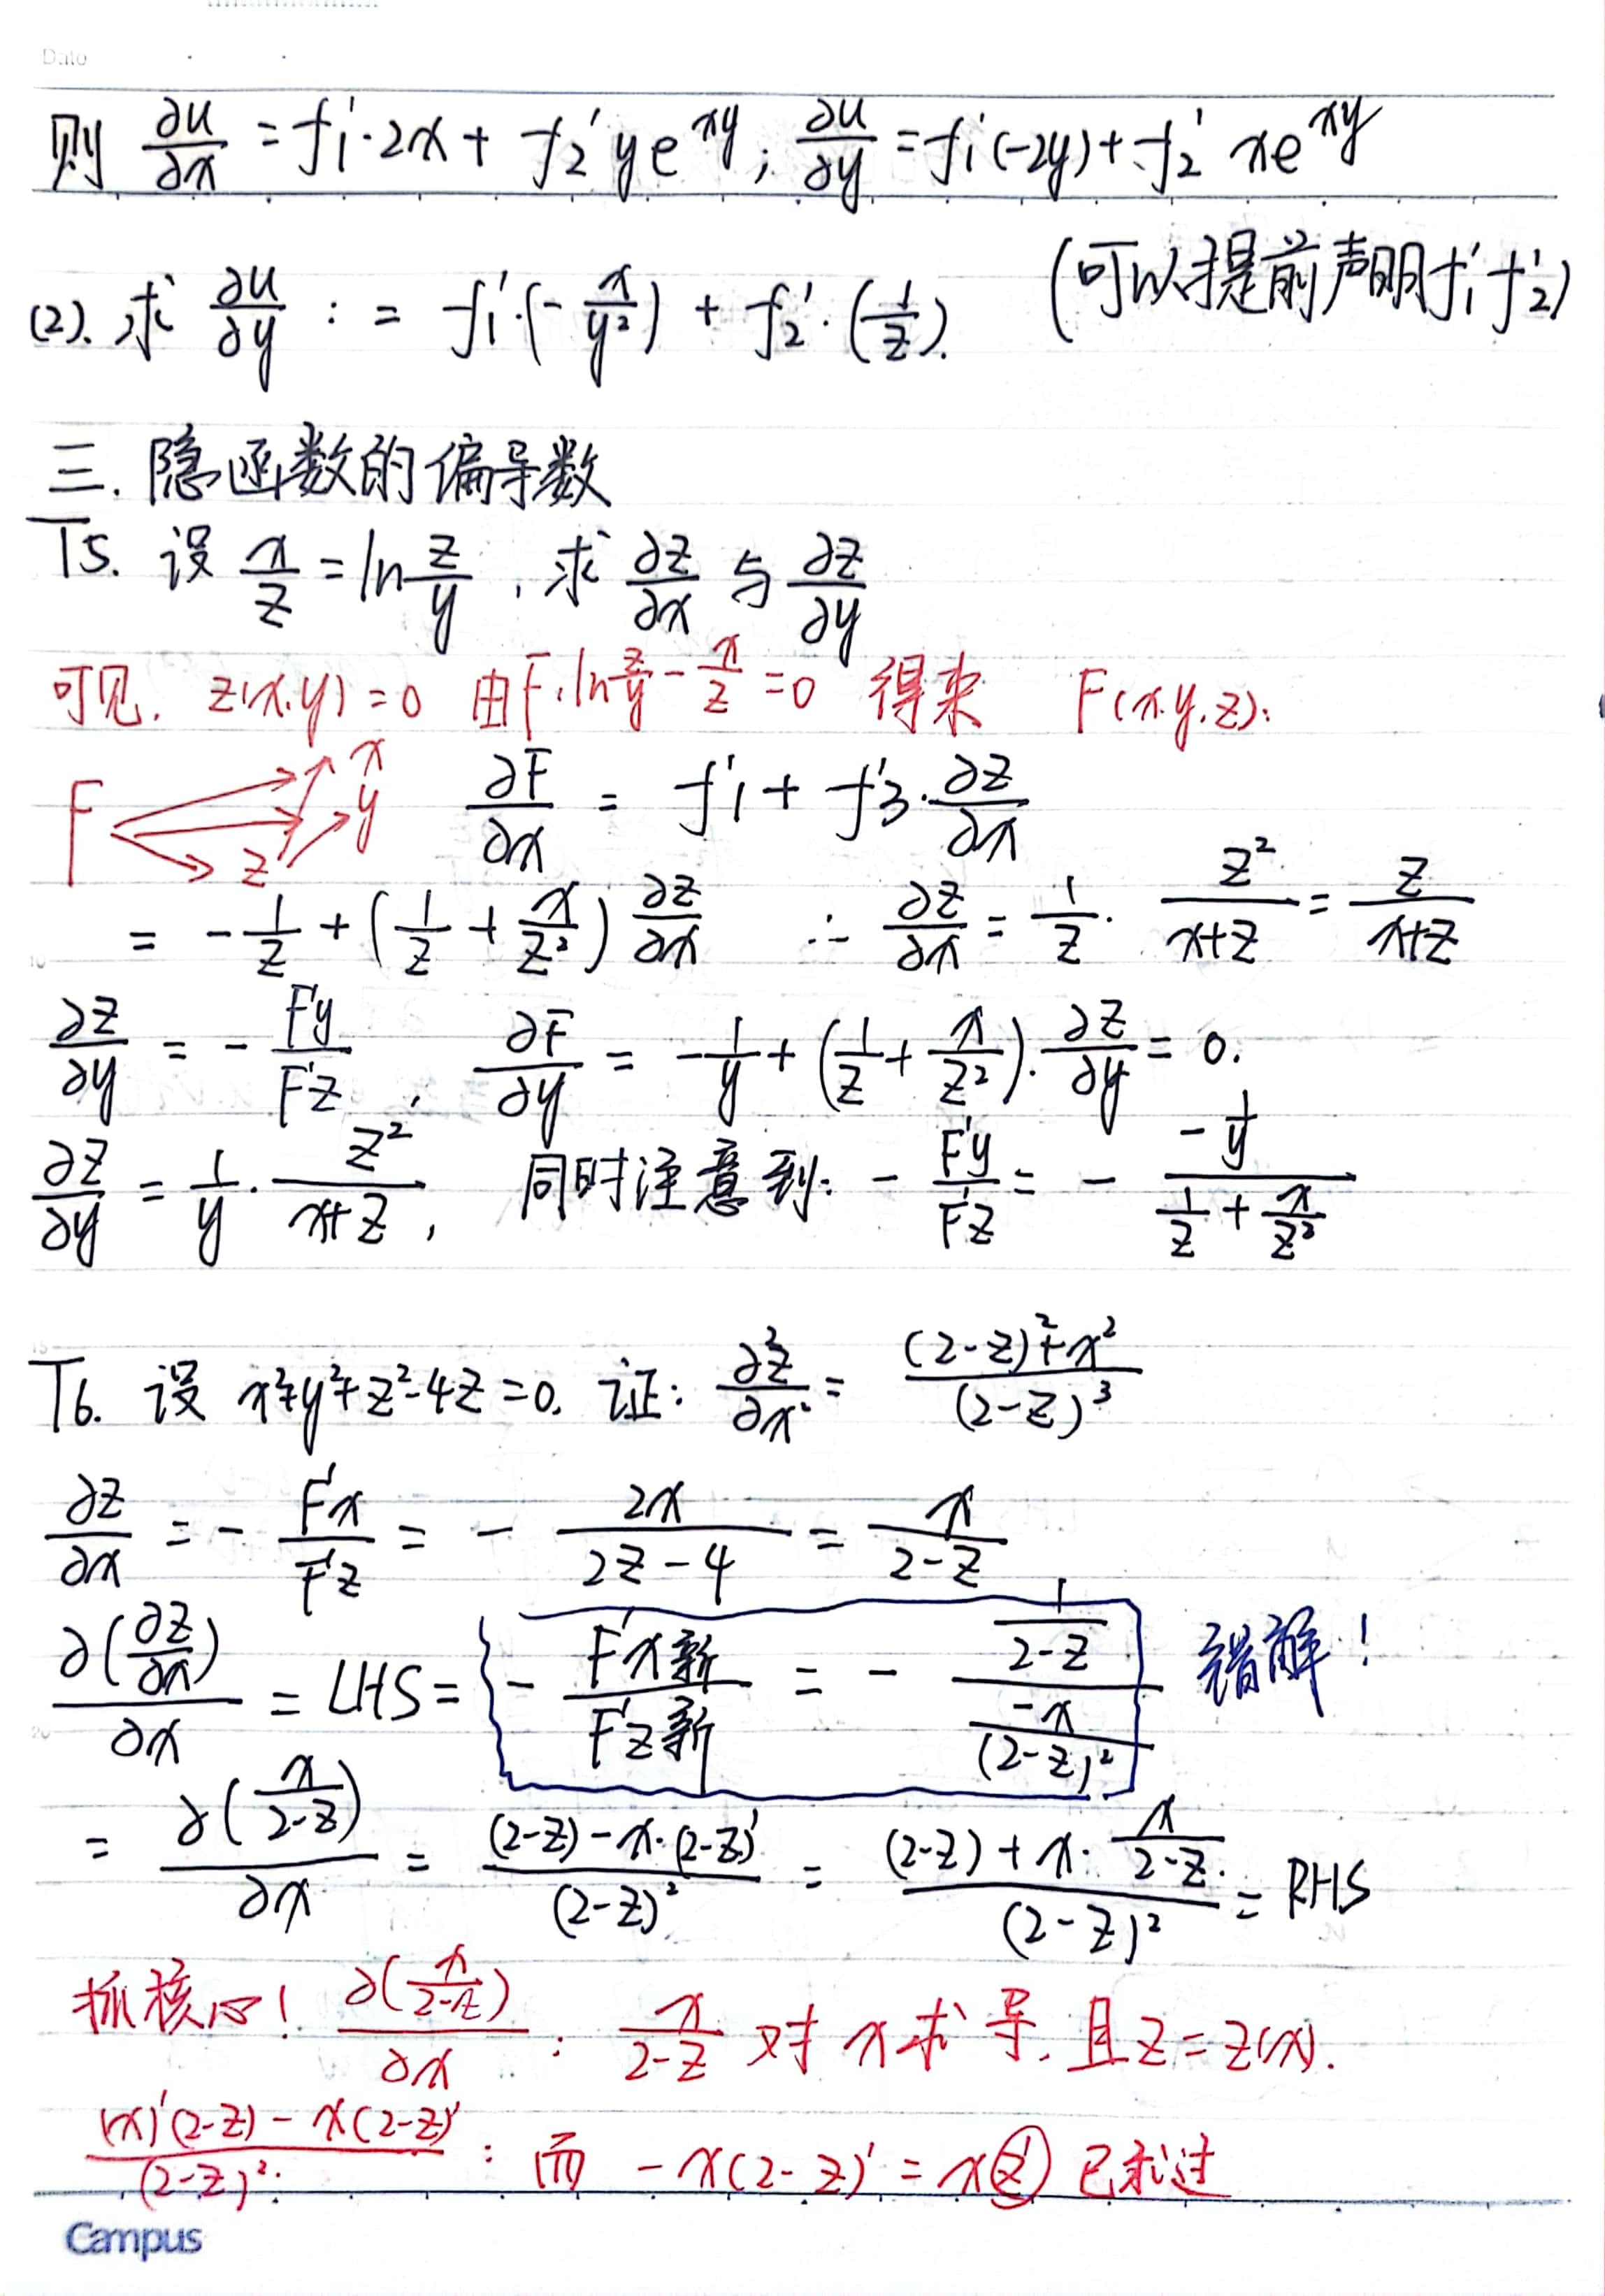 Date
则 ∂u/∂x = f₁'·2x + f₂' y e^{xy}; ∂u/∂y = f₁'(-2y) + f₂' x e^{xy}
(2). 求 ∂u/∂y : = f₁'·(-x/y²) + f₂'·(1/z). (可以提前声明f₁' f₂')
三. 隐函数的偏导数
T5. 设 x/z = ln z/y , 求 ∂z/∂x 与 ∂z/∂y
可见. z(x,y)=0 由F: ln z/y - x/z = 0 得来 F(x,y,z):
F x y z ∂F/∂x = f'1 + f'3·∂z/∂x
= -1/z + (1/z + x/z²) ∂z/∂x ∴ ∂z/∂x = 1/z · z²/(x+z) = z/(x+z)
∂z/∂y = - F'y/F'z , ∂F/∂y = -1/y + (1/z + x/z²)·∂z/∂y = 0.
∂z/∂y = 1/y · z²/(x+z) , 同时注意到: - F'y/F'z = - (-1/y)/(1/z + x/z²)
T6. 设 x²+y²+z²-4z=0. 证: ∂²z/∂x² = ((2-z)²+x²)/(2-z)³
∂z/∂x = - F'x/F'z = - 2x/(2z-4) = x/(2-z)
∂(∂z/∂x)/∂x = LHS = - F'x新/F'z新 = - (1/(2-z))/(-x/(2-z)²) 错解!
= ∂(x/(2-z))/∂x = ((2-z) - x·(2-z)')/(2-z)² = ((2-z) + x·x/(2-z))/(2-z)² = RHS
抓核心! ∂(x/(2-z))/∂x : x/(2-z) 对 x 求导. 且 z = z(x).
((x)'(2-z) - x(2-z)')/(2-z)² : 而 -x(2-z)' = x z' 已求过
Campus